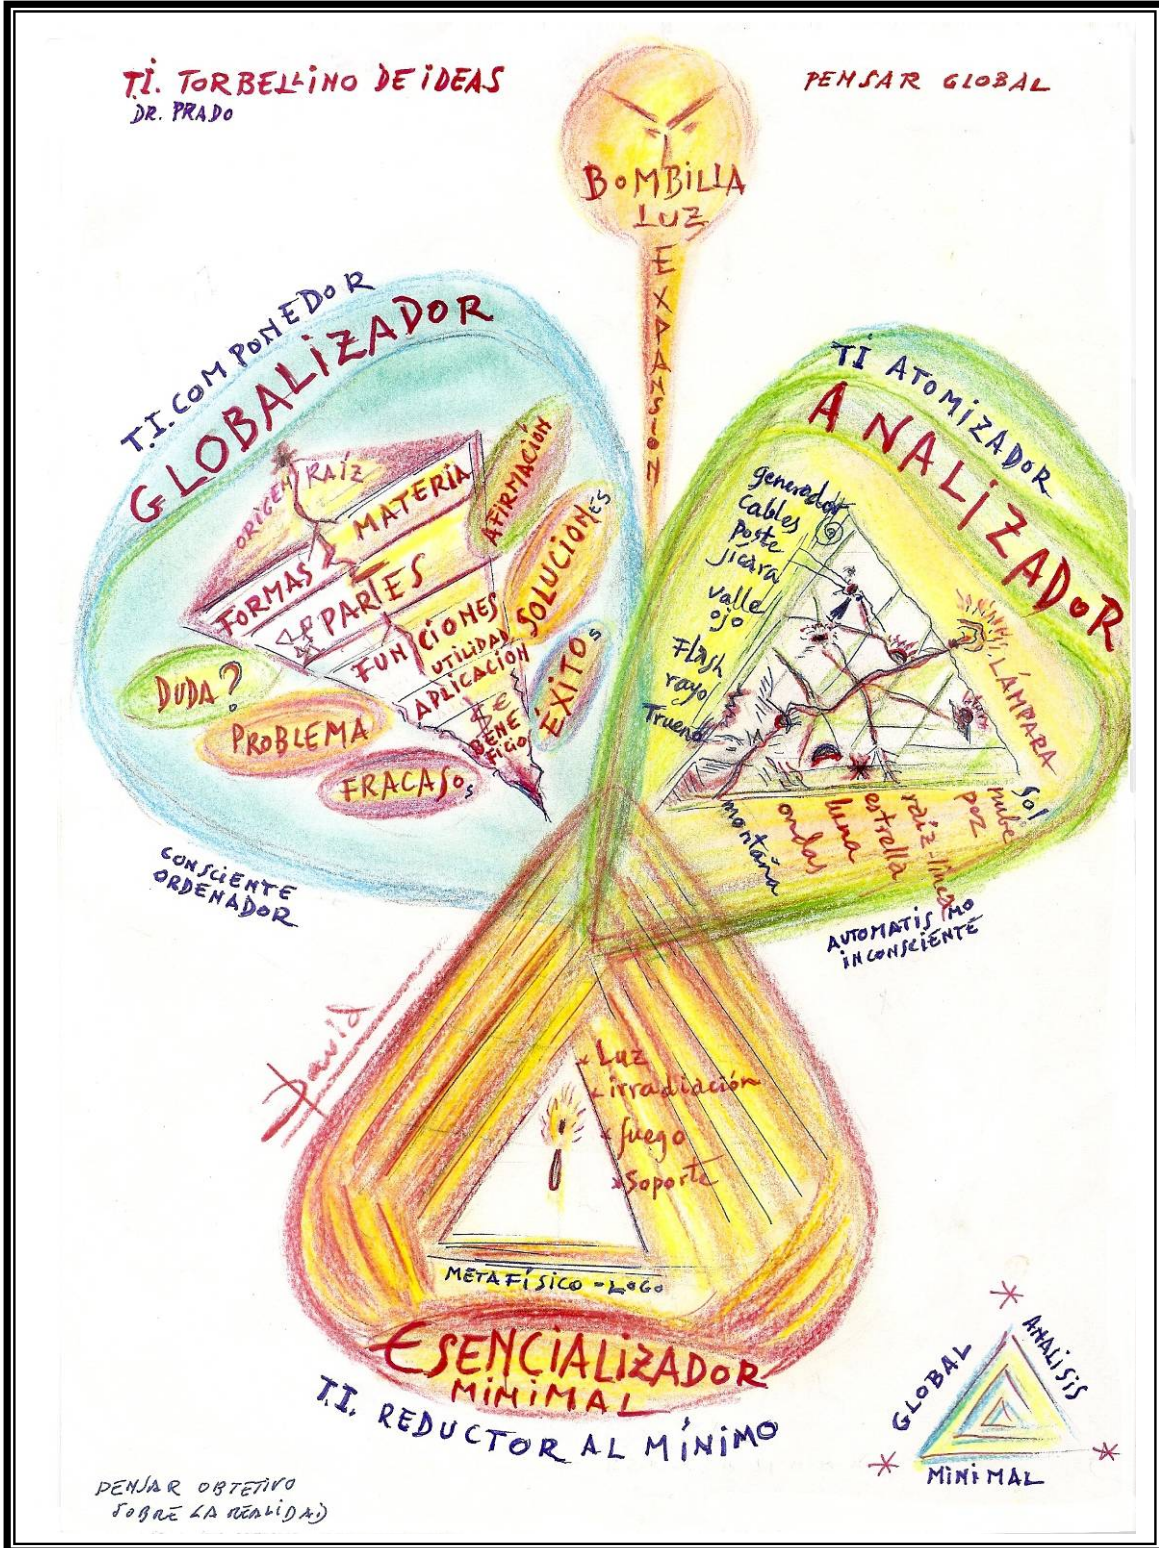 T.I. TORBELLINO DE IDEAS
DR. PRADO
PENSAR GLOBAL
BOMBILLA
LUZ
EXPANSION
T.I. COMPONEDOR
GLOBALIZADOR
ORIGEN RAÍZ
FORMAS MATERIA
PARTES
FUNCIONES
UTILIDAD
APLICACIÓN
$ €
BENE
FICIO
AFIRMACIÓN
SOLUCIONES
ÉXITOS
DUDA?
PROBLEMA
FRACASOS
CONSCIENTE
ORDENADOR
TI ATOMIZADOR
ANALIZADOR
generador
cables
poste
jícara
valle
ojo
Flash
rayo
Trueno
LÁMPARA
Sol
nube
pez
raiz-línea
estrella
luna
ondas
montaña
AUTOMATISMO
INCONSCIENTE
David
Luz
irradiación
fuego
soporte
METAFÍSICO-LOGO
ESENCIALIZADOR
MINIMAL
T.I. REDUCTOR AL MÍNIMO
GLOBAL
ANALISIS
MINIMAL
PENSAR OBTETIVO
SOBRE LA REALIDAD